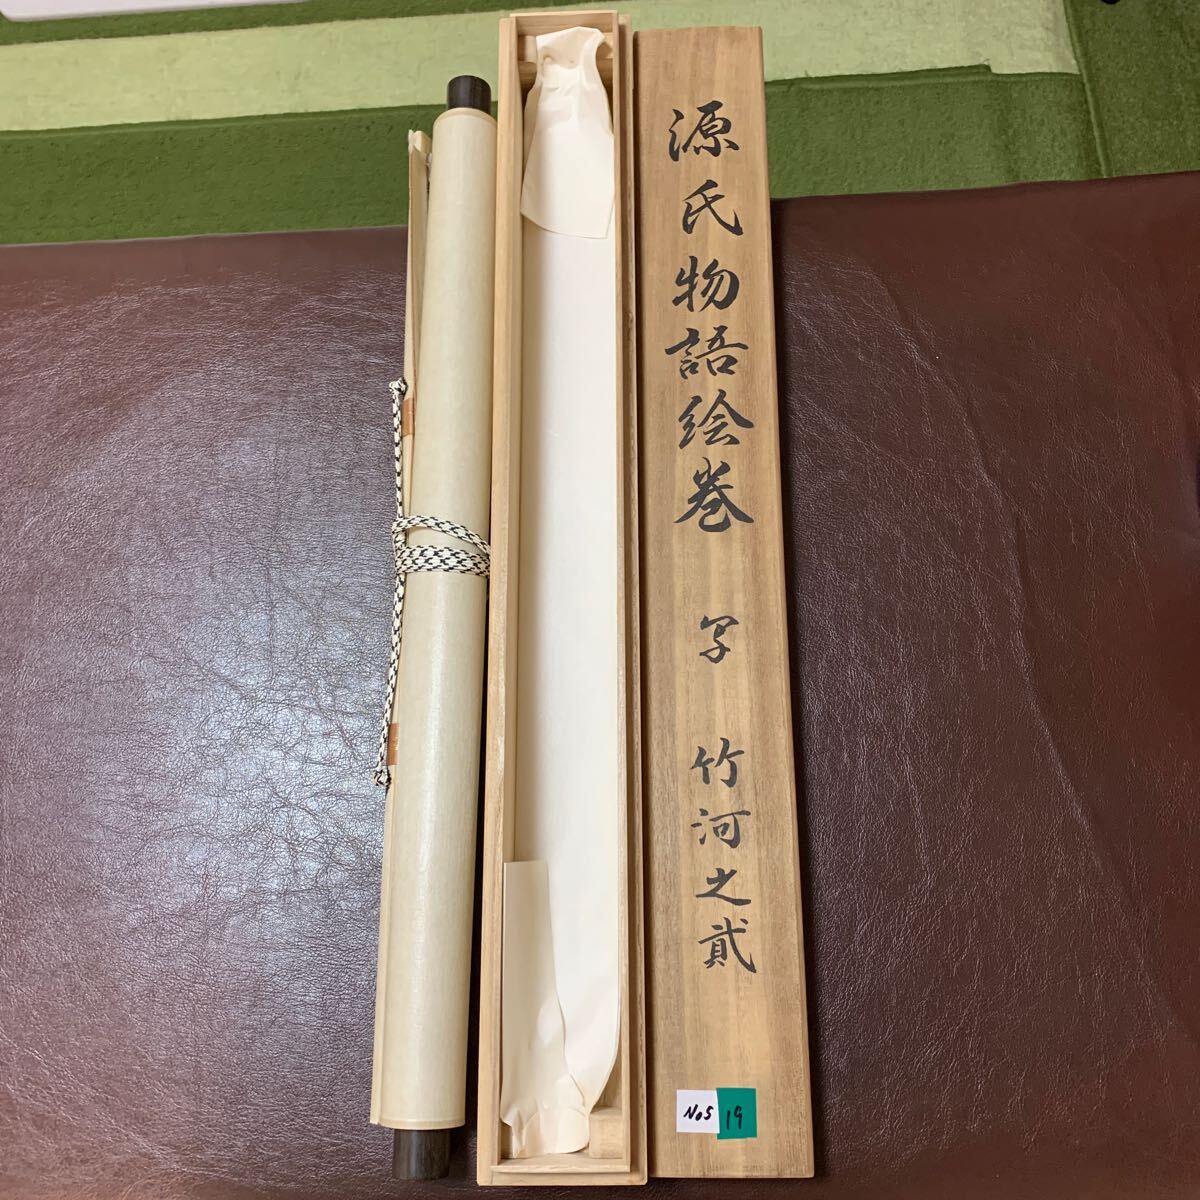 源氏物語絵巻 写 竹河之貳
No5
19